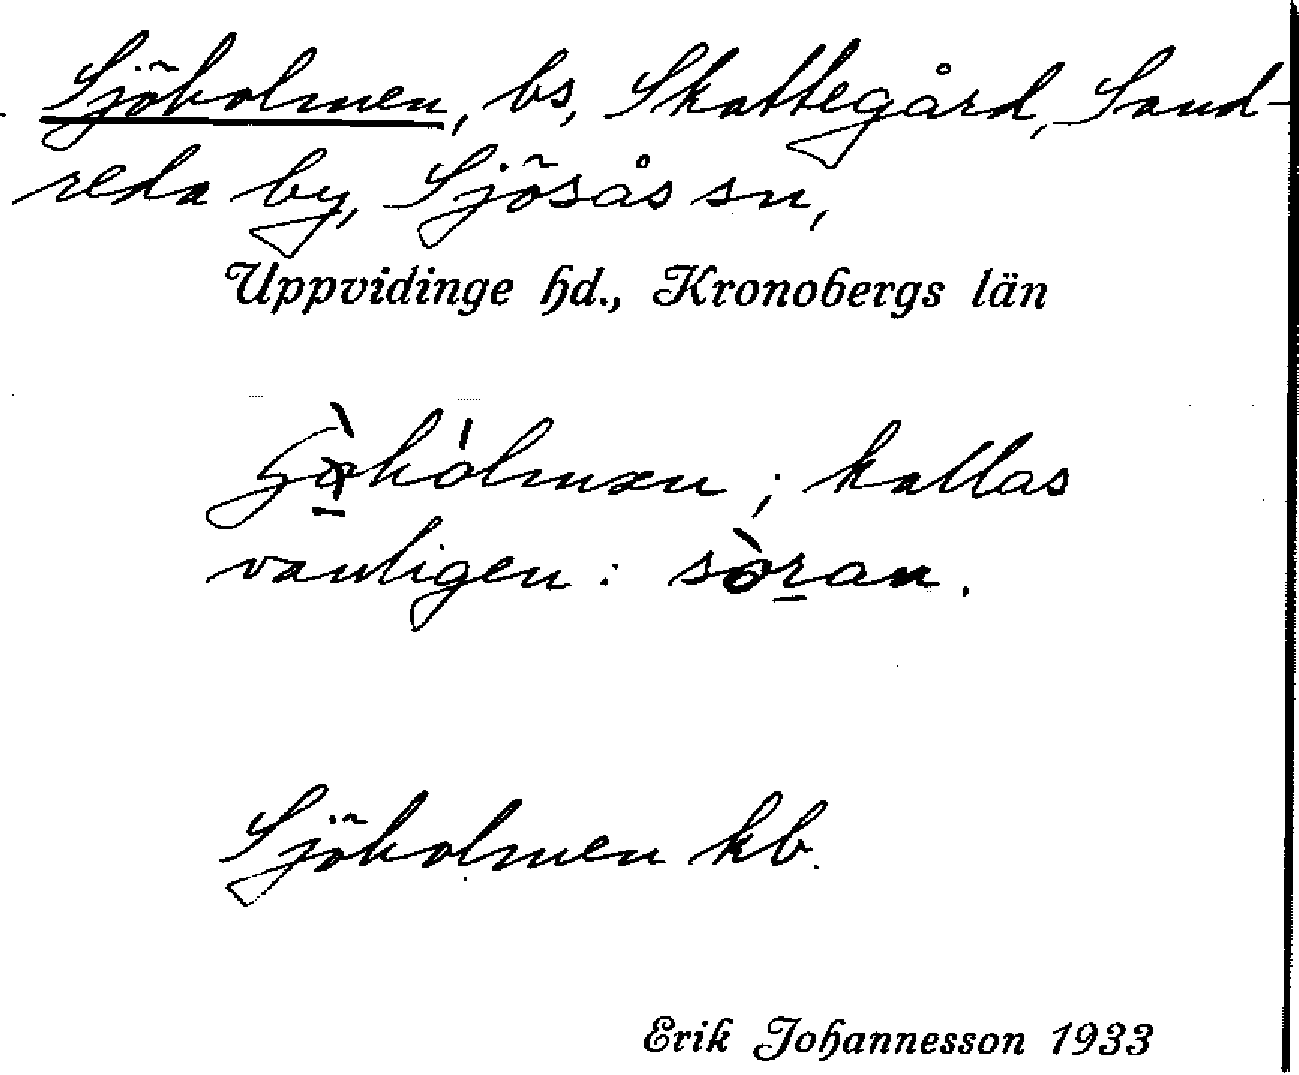 Sjöholmen, bs, Skattegård, Sand-
reda by, Sjösås sn,
Uppvidinge hd., Kronobergs län
; kallas
vanligen: sòran.
Sjöholmen kb.
Erik Johannesson 1933